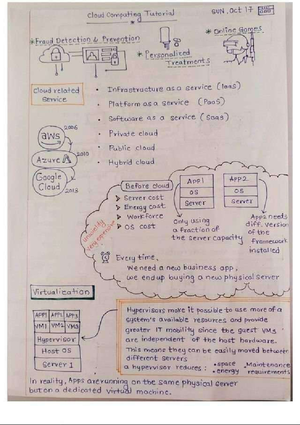 Cloud Computing Tutorial
SUN, Oct 17
* Fraud Detection & Prevention
* Personalized
Treatments
* Online Games
Cloud related
Service
• Infrastructure as a service (IaaS)
• Platform as a service (PaaS)
• Software as a service (SaaS)
• Private cloud
• Public cloud
• Hybrid cloud
aws
2006
Azure
2010
Google
Cloud
2013
Before cloud
➤ Server cost
➤ Energy cost
➤ Workforce
➤ OS cost
App1
OS
Server
App2
OS
Server
Only using
a fraction of
the server capacity
Apps needs
diff. Version
of the
Framework
installed
Every time,
We need a new business app,
we end up buying a new physical server
Virtualization
App1 App2 App3
VM1 VM2 VM3
Hypervisor
Host OS
Server 1
Hypervisors make it possible to use more of a
system's available resources and provide
greater IT mobility since the guest VMs
are independent of the host hardware.
This means they can be easily moved between
different servers
a hypervisor reduces: • space • Maintenance
• energy requirements
In reality, Apps are running on the same physical server
but on a dedicated virtual machine.